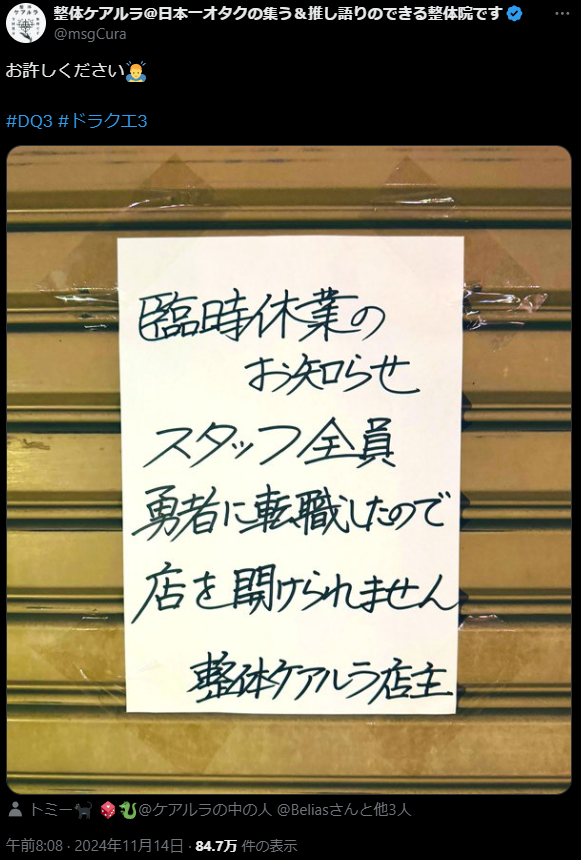 整体ケアルラ@日本一オタクの集う＆推し語りのできる整体院です
@msgCura
お許しください🙇‍♂️
#DQ3 #ドラクエ3
臨時休業の
お知らせ
スタッフ全員
勇者に転職したので
店を開けられません
整体ケアルラ店主
トミー🐈‍⬛ 🎲🐍@ケアルラの中の人 @Beliasさんと他3人
午前8:08 · 2024年11月14日 · 84.7万 件の表示